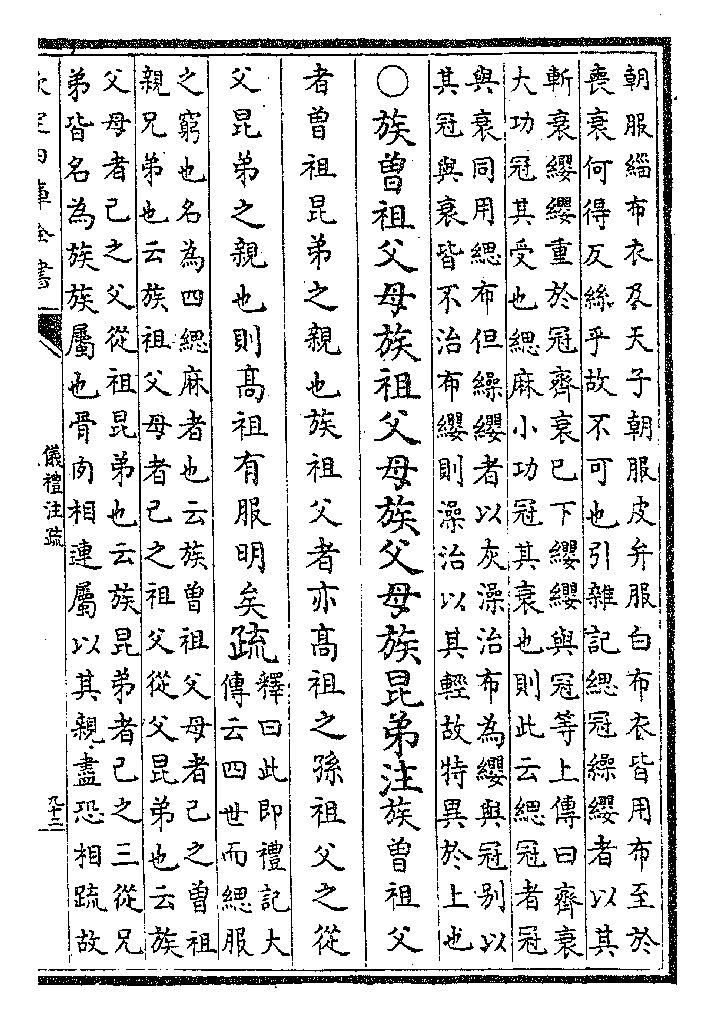 朝服緇布衣及天子朝服皮弁服白布衣皆用布至於
喪衰何得反絲乎故不可也引雜記緦冠繰纓者以其
斬衰纓纓重於冠齊衰已下纓纓與冠等上傳曰齊衰
大功冠其受也緦麻小功冠其衰也則此云緦冠者冠
與衰同用緦布但繰纓者以灰澡治布為纓與冠别以
其冠與衰皆不治布纓則澡治以其輕故特異於上也
○族曽祖父母族祖父母族父母族昆弟注族曽祖父
者曽祖昆弟之親也族祖父者亦髙祖之孫祖父之從
父昆弟之親也則髙祖有服明矣疏釋曰此即禮記大
傳云四世而緦服
之窮也名為四緦麻者也云族曽祖父母者己之曽祖
親兄弟也云族祖父母者己之祖父從父昆弟也云族
父母者己之父從祖昆弟也云族昆弟者己之三從兄
弟皆名為族族屬也骨肉相連屬以其親盡恐相疏故
欽定四庫全書
儀禮注疏
九十二